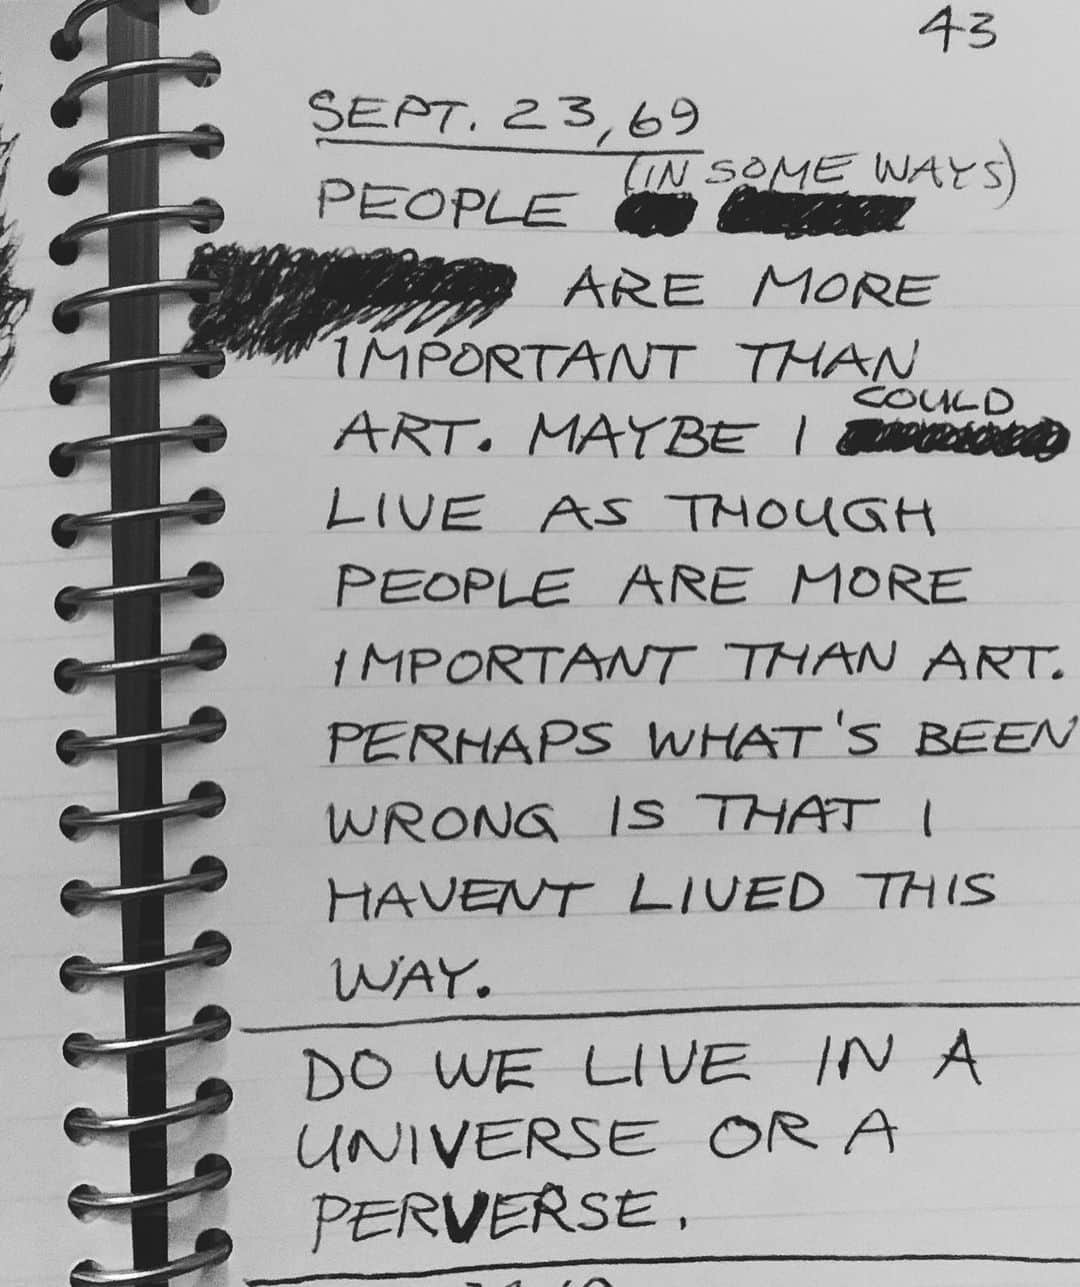 43
SEPT. 23, 69
(IN SOME WAYS)
PEOPLE
ARE MORE
IMPORTANT THAN
COULD
ART. MAYBE I
LIVE AS THOUGH
PEOPLE ARE MORE
IMPORTANT THAN ART.
PERHAPS WHAT'S BEEN
WRONG IS THAT I
HAVENT LIVED THIS
WAY.
DO WE LIVE IN A
UNIVERSE OR A
PERVERSE.